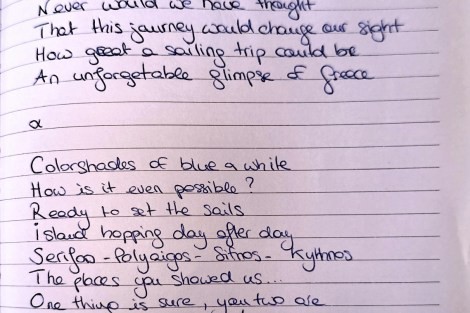 Never would we have thought
That this journey would change our sight
How great a sailing trip could be
An unforgetable glimpse of Greece
α
Colorshades of blue a white
How is it even possible?
Ready to set the sails
island hopping day after day
Serifos - Polyaigos - Sifnos - Kythnos
The places you showed us...
One thing is sure, you two are